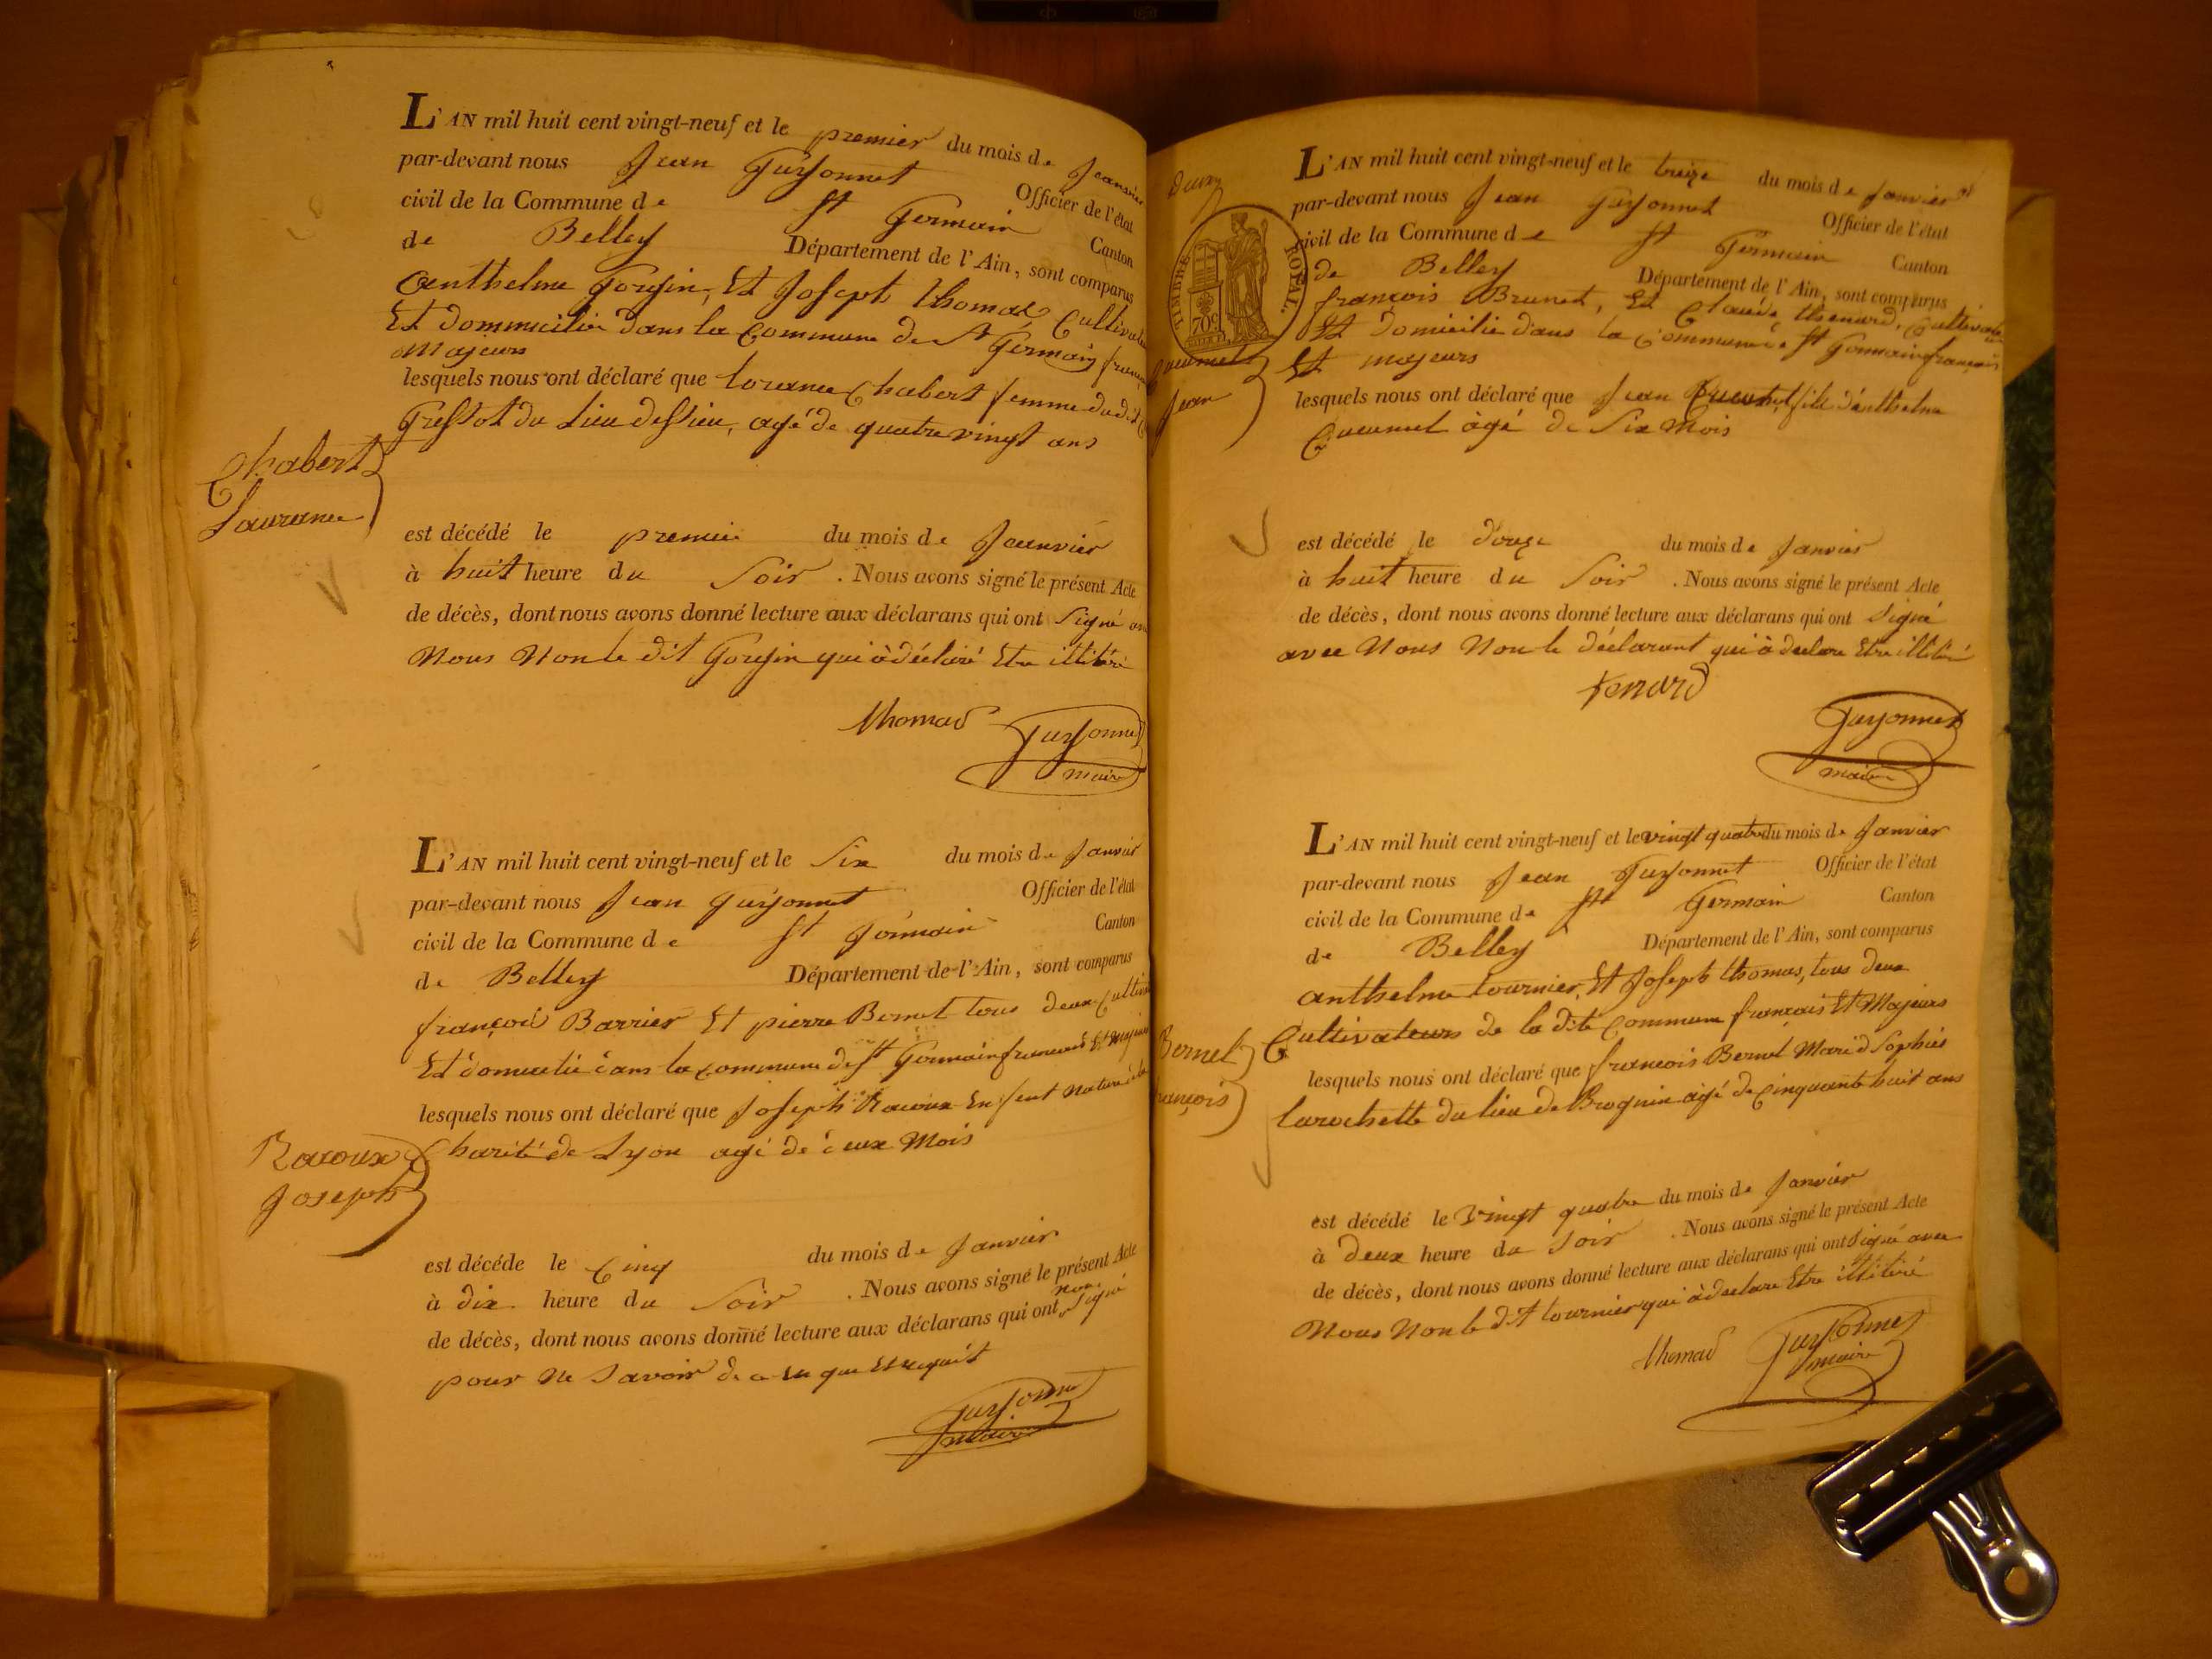 L'AN mil huit cent vingt-neuf et le premier du mois de Jeanvier
par-devant nous Jean Guÿonnet Officier de l'état
civil de la Commune de St Germain Canton
de Belley Département de l'Ain, sont comparus
Anthelme Goujin, Et Joseph thomas Cultivat
Et dommicilié dans la Commune de St Germain
Majeurs
lesquels nous ont déclaré que lorance Chabert femme du dit
du Lieu agé de quatre vingt ans
Chabert
Laurance
est décédé le premie du mois de Jeanvier
à huit heure du Soir . Nous avons signé le présent Acte
de décès, dont nous avons donné lecture aux déclarans qui ont Signé
Nous Non le dit Goujin qui à déclaré Etre illitéré
thomas
Guÿonnet
maire
L'AN mil huit cent vingt-neuf et le Six du mois de Janvier
par-devant nous Jean Guÿonnet Officier de l'état
civil de la Commune de St Germain Canton
de Belley Département de l'Ain, sont comparus
françois Barrier Et pierre Bernet tous deux Cultiva
Et domicilié dans la commune de St Germain francais Et
lesquels nous ont déclaré que Joseph Racoux Enfent Nature
Charité de Lyon agé de deux Mois
Racoux
Joseph
est décéde le Cinq du mois de Janvier
à dix heure du Soir . Nous avons signé le présent Acte
de décès, dont nous avons donné lecture aux déclarans qui ont non Signé
pour ne Savoir de ce En que Et requit
Guÿonnet
maire
L'AN mil huit cent vingt-neuf et le treize du mois de Janvier
par-devant nous Jean Guÿonnet Officier de l'état
civil de la Commune de St Germain Canton
de Belley Département de l'Ain, sont comparus
TIMBRE ROYAL.
70c
françois Brunet, Et Claude thenard, Cultivate
Et domicilié dans la Commune de St Germain françois
Et majeurs
lesquels nous ont déclaré que Jean Cucunet, fils d'anthelme
Cucunet àgé de Six Mois
Jean
est décédé le douze du mois de Janvier
à huit heure du Soir . Nous avons signé le présent Acte
de décès, dont nous avons donné lecture aux déclarans qui ont Signé
avec Nous Non le déclarant qui à declare Etre illitéré
tenard
Guÿonnet
maire
L'AN mil huit cent vingt-neuf et le vingt quatre du mois de Janvier
par-devant nous Jean Guÿonnet Officier de l'état
civil de la Commune de St Germain Canton
de Belley Département de l'Ain, sont comparus
anthelme tournier, Et Joseph thomas, tous deux
Cultivateurs de la dite Commune francais Et Majeurs
lesquels nous ont déclaré que francois Bernet Mari d Sophie
larochette du lieu de Brognin agé de Cinquante huit ans
Bernet
françois
est décédé le vingt quatre du mois de Janvier
à deux heure du Soir . Nous avons signé le présent Acte
de décès, dont nous avons donné lecture aux déclarans qui ont Signé avec
Nous Non le dit tournier qui à declare Etre illitéré
thomas
Guÿonnet
maire